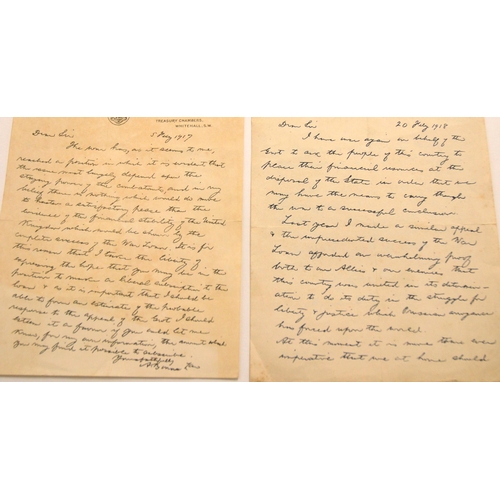 TREASURY CHAMBERS,
WHITEHALL, S.W.
5 Feby 1917
Dear Sir
The war has, as it seems to me,
reached a position in which it is evident that
the issue must largely depend upon the
staying power of the combatants, and in my
belief there is nothing which would do more
to hasten a satisfactory peace than the
evidence of the financial stability of the United
Kingdom which would be shown by the
complete success of the War Loan. It is for
this reason that I take the liberty of
expressing the hope that you may be in the
position to make a liberal subscription to this
Loan & as it is important that I should be
able to form an estimate of the probable
response to the appeal of the Govt I should
esteem it a favour if you could let me
know, for my own information, the amount which
you may find it possible to subscribe.
Yours faithfully
A Bonar Law
Dear Sir 20 Feby 1918
I have once again on behalf of the
Govt to ask the people of this country to
place their financial resources at the
disposal of the State in order that we
may have the means to carry through
the war to a successful conclusion.
Last year I made a similar appeal
& the unprecedented success of the War
Loan afforded an overwhelming proof
both to our Allies & our enemies that
this country was united in its determin-
ation to do its duty in the struggle for
liberty & justice which Prussian arrogance
has forced upon the world.
At this moment it is more than ever
imperative that we at home should